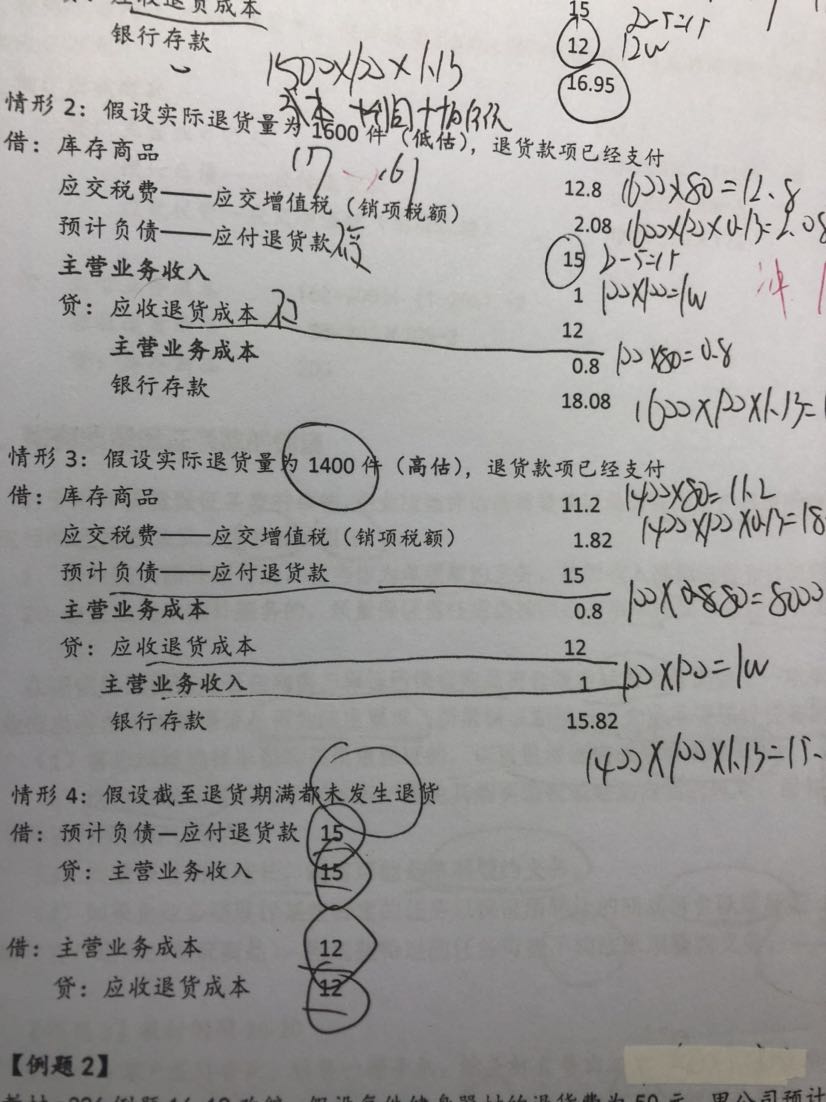 应收退货成本 15 2-5=15
银行存款 12 12W
1500×100×1.13 16.95
情形 2：假设实际退货量为 1600 件（低估），退货款项已经支付
借：库存商品 12.8 1600×80=12.8
应交税费——应交增值税（销项税额） 2.08 1600×100×0.13=2.08
预计负债——应付退货款 15 2-5=15
主营业务收入 1 100×100=1W 冲
贷：应收退货成本 12
主营业务成本 0.8 100×80=0.8
银行存款 18.08 1600×100×1.13=1
情形 3：假设实际退货量为 1400 件（高估），退货款项已经支付
借：库存商品 11.2 1400×80=11.2
应交税费——应交增值税（销项税额） 1.82 1400×100×0.13=18
预计负债——应付退货款 15
主营业务成本 0.8 80=8000
贷：应收退货成本 12
主营业务收入 1 100×100=1W
银行存款 15.82
1400×100×1.13=15.
情形 4：假设截至退货期满都未发生退货
借：预计负债—应付退货款 15
贷：主营业务收入 15
借：主营业务成本 12
贷：应收退货成本 12
【例题 2】